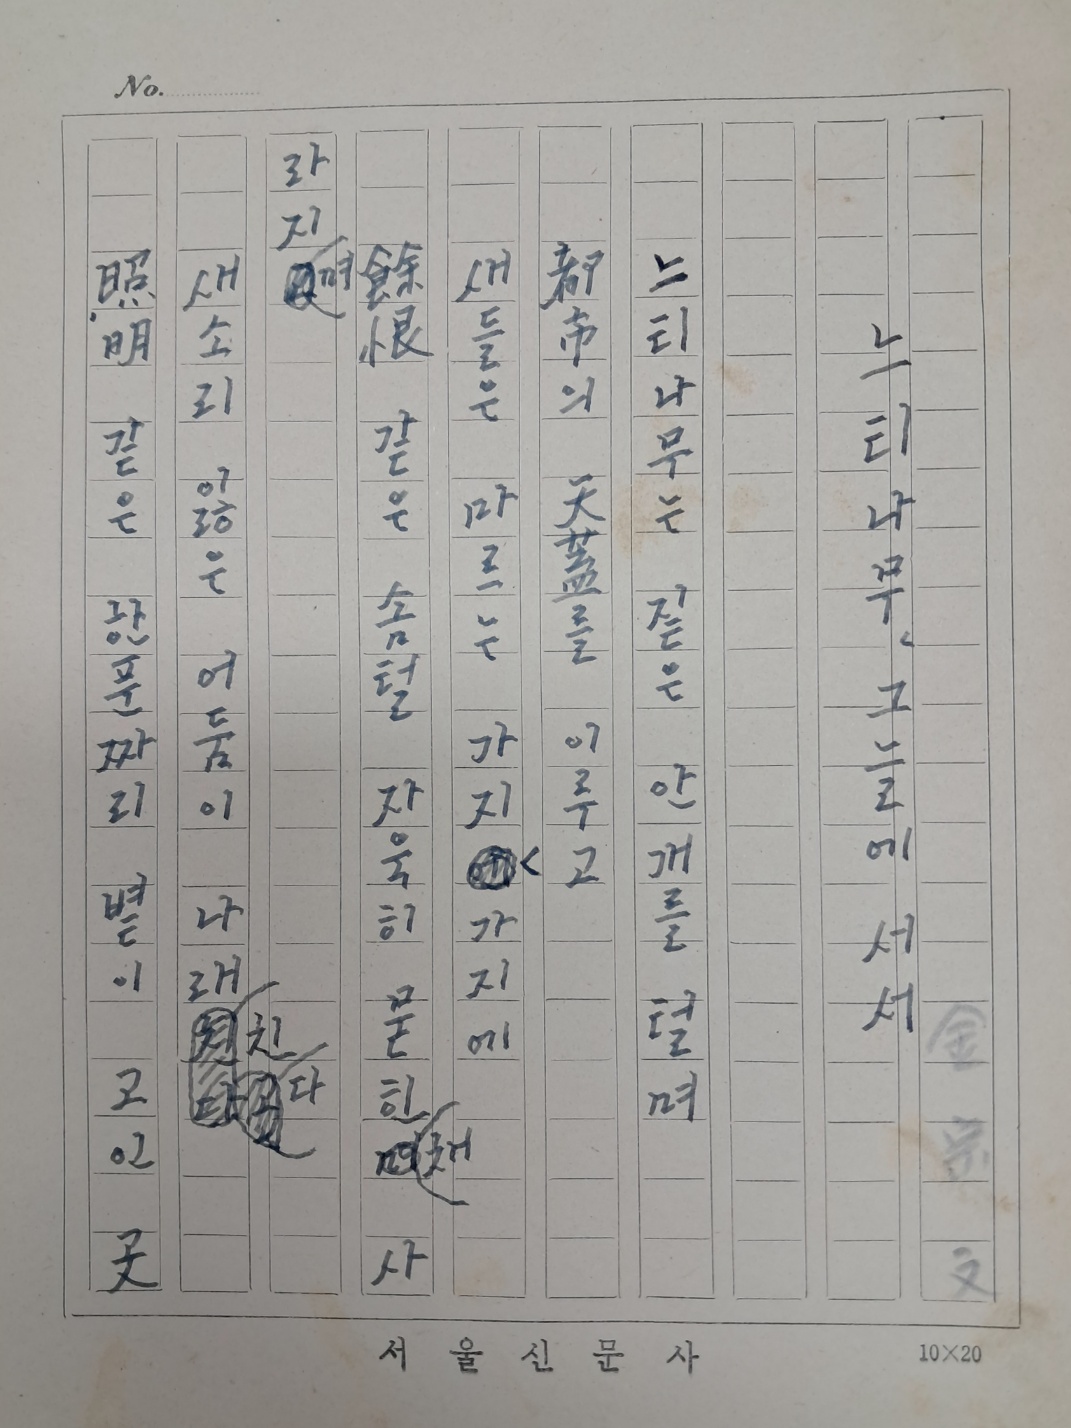 No.
金宗文
느티나무、그늘에 서서
느티나무는 짙은 안개를 털며
都市의 天蓋를 이루고
새들은 마르는 가지 가지에
餘恨 같은 솜털 자욱히 묻힌채 사
라지며
새소리 잃은 어둠이 나래친다
照明 같은 한푼짜리 별이 고인 곳
서울신문사
10×20